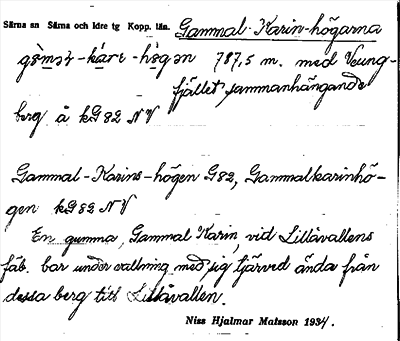 Särna sn Särna och Idre tg Kopp. län. Gammal-Karin-högarna
787,5 m. med Veung-
fjället sammanhängande
berg å kG82 NV
Gammal-Karins-högen G82, Gammalkarinhö-
gen kG82 NV
En gumma, Gammal Karin, vid Lillåvallens
fäb. bar under vallning med sig tjärved ända från
dessa berg till Lillåvallen.
Niss Hjalmar Matsson 1934.